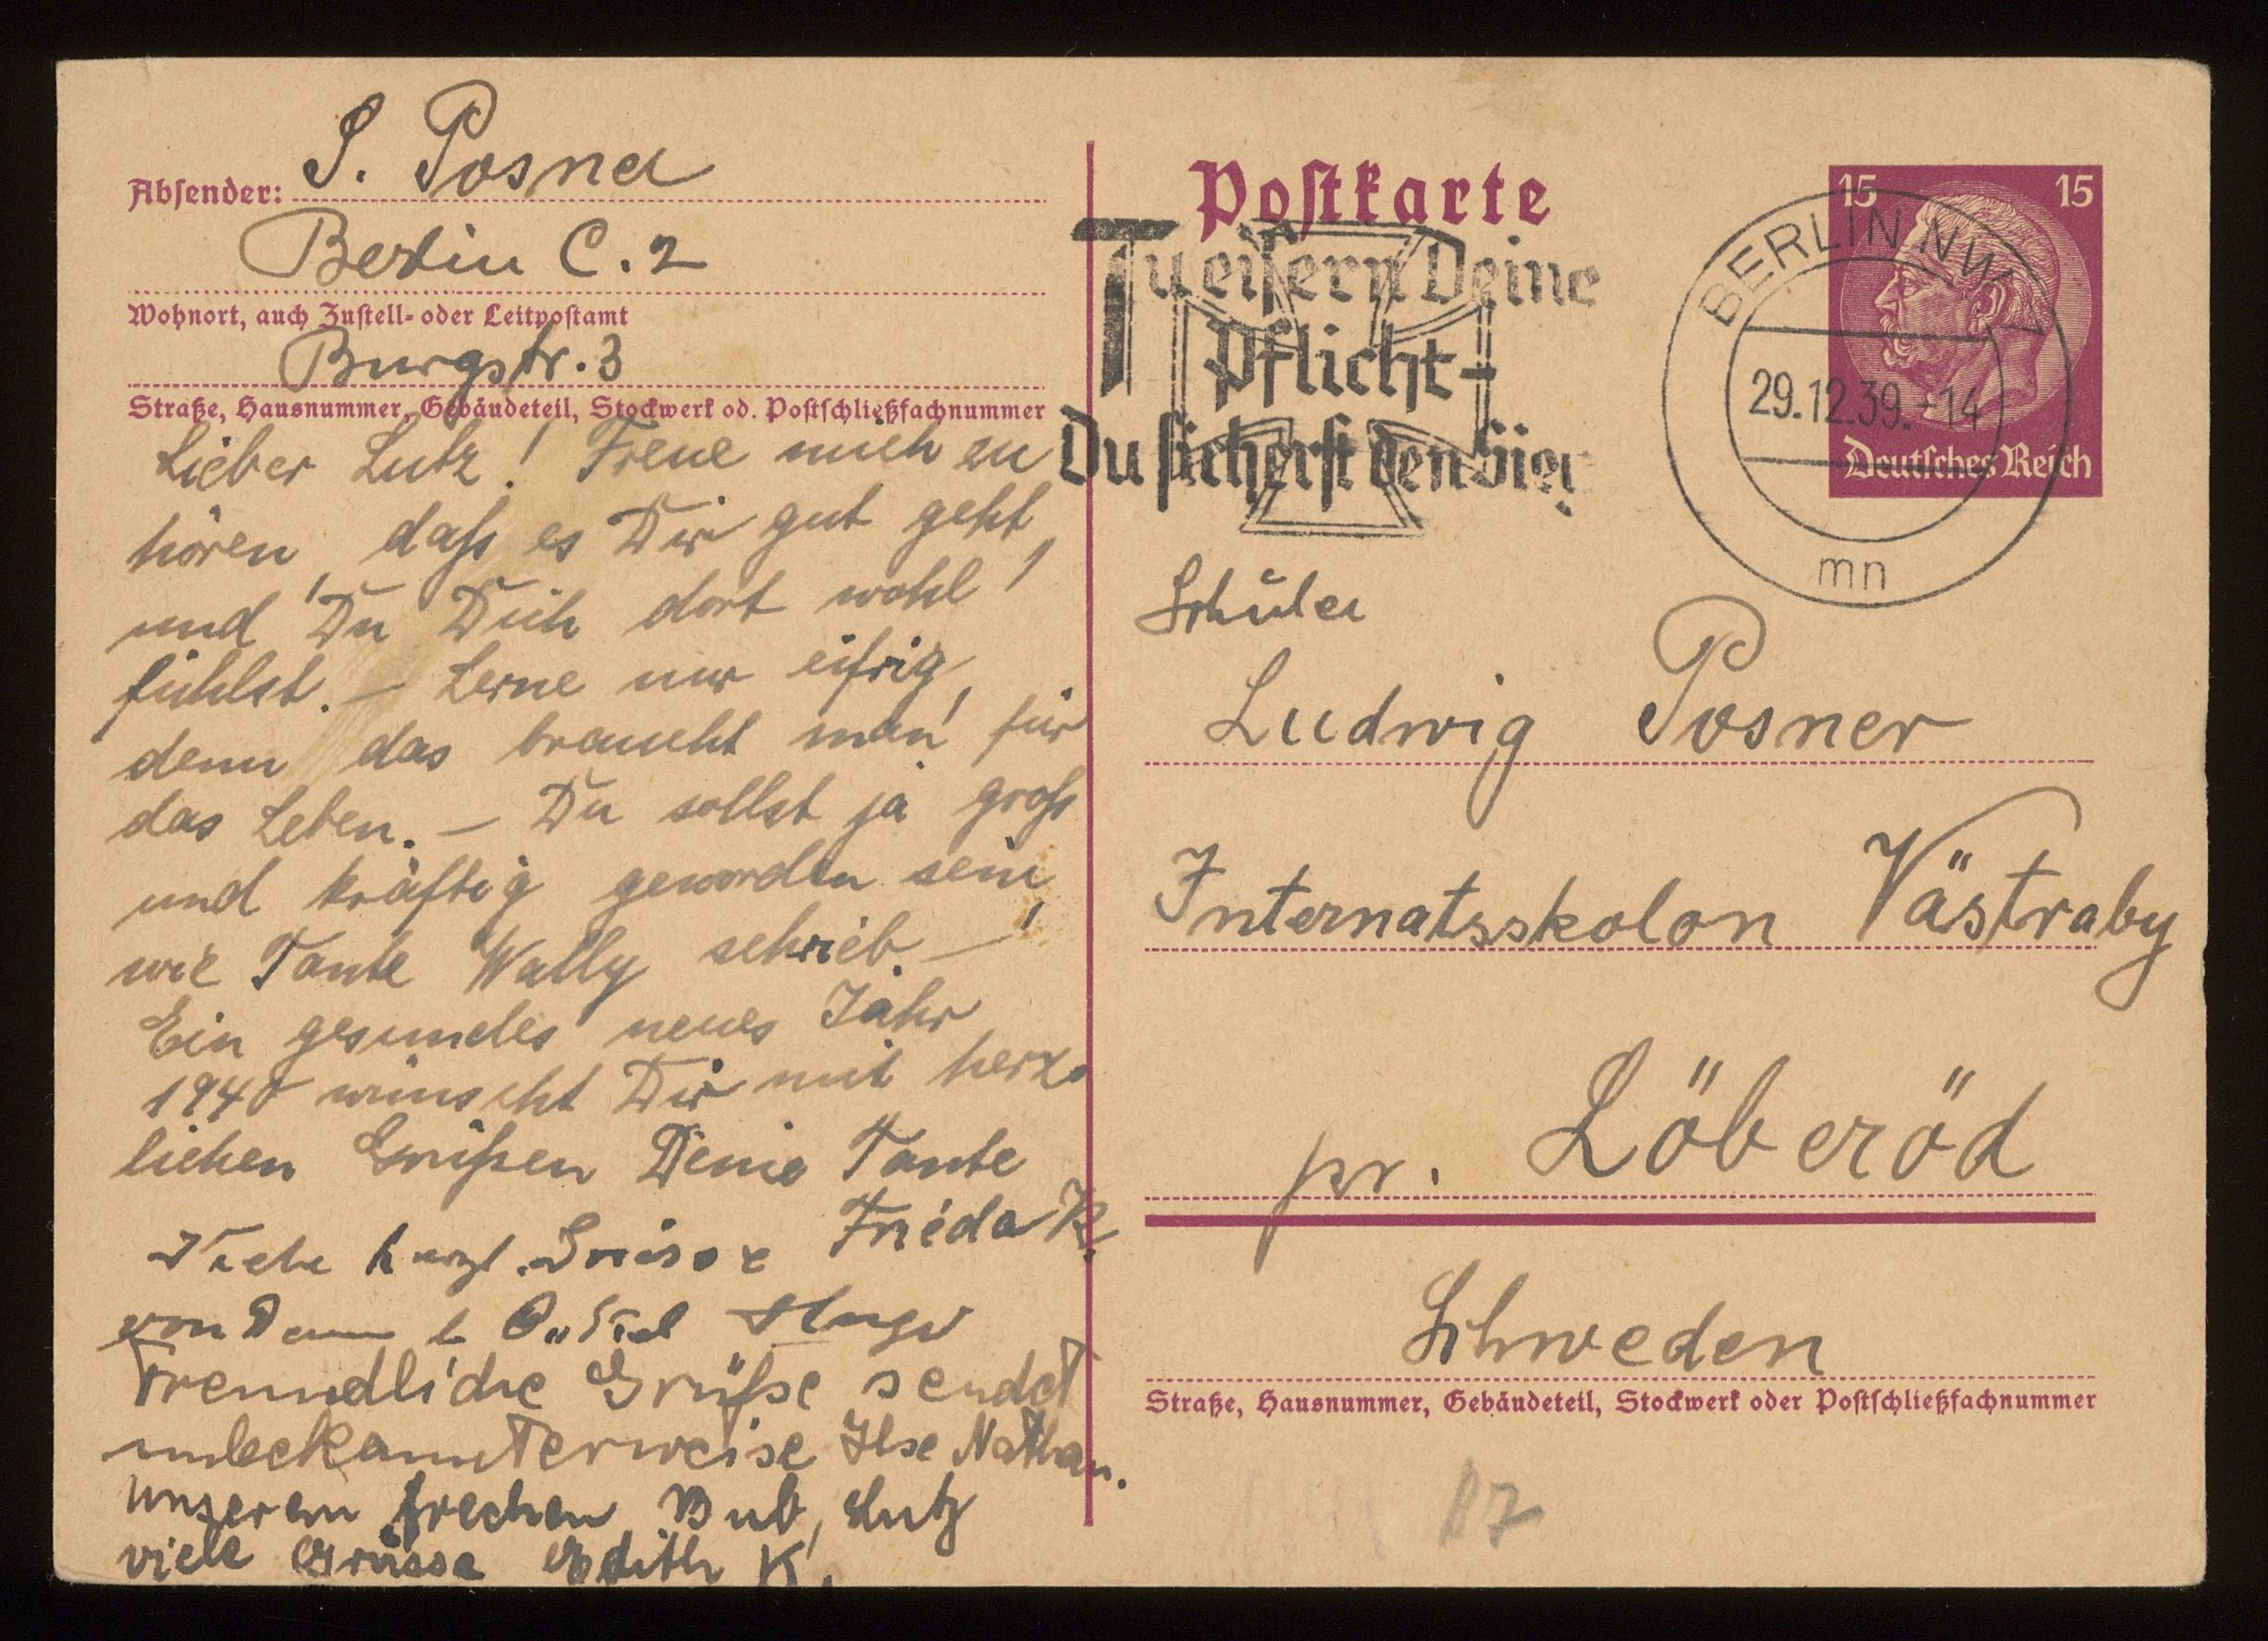 Absender: S. Posner
Berlin C. 2
Wohnort, auch Zustell- oder Leitpostamt
Burgstr. 3
Straße, Hausnummer, Gebäudeteil, Stockwerk od. Postschließfachnummer
Lieber Lutz! Freue mich zu
hören, daß es Dir gut geht,
und Du Dich dort wohl
fühlst. – Lerne nur eifrig,
denn das braucht man für
das Leben. – Du sollst ja groß
und kräftig geworden sein,
wie Tante Wally schrieb. –
Ein gesundes neues Jahr
1940 wünscht Dir mit herz-
lichen Grüßen Deine Tante
Frieda K.
Viele herzl. Grüsse
von Onkel Hugo
Freundliche Grüße sendet
unbekannterweise Ilse Nathan.
Unserem frechen Bub, Lutz
viele Grüsse Edith K.
Postkarte
Tu eisern Deine
Pflicht-
Du sicherst den Sieg
15 15
Deutsches Reich
BERLIN NW 7
29.12.39.-14
mn
Schüler
Ludwig Posner
Internatsskolan Västraby
pr. Löberöd
Schweden
Straße, Hausnummer, Gebäudeteil, Stockwerk oder Postschließfachnummer